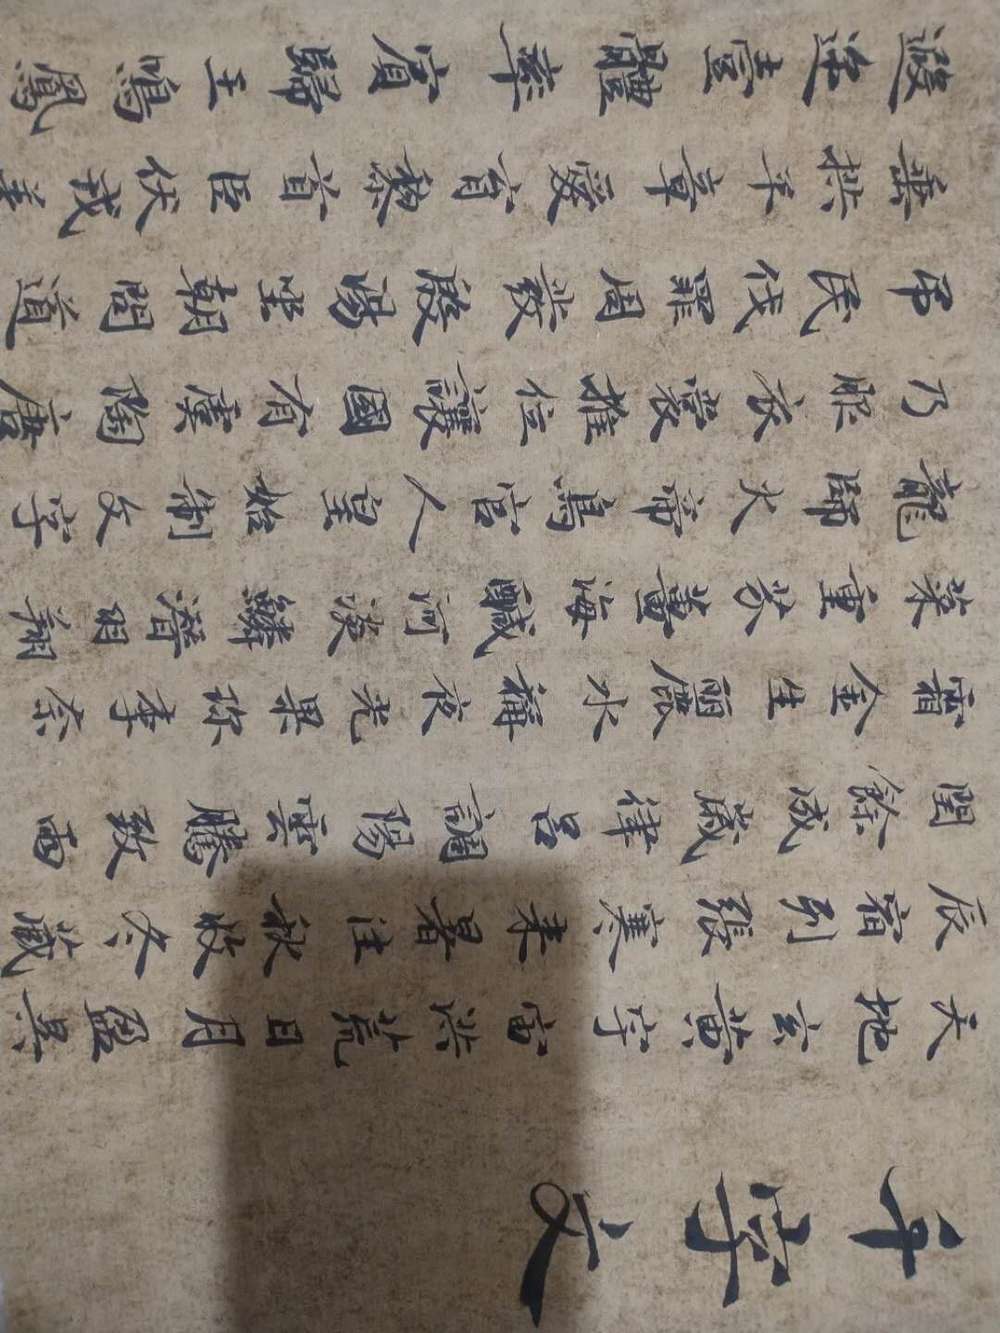 千字文
天地玄黄宇宙洪荒日月盈昃
辰宿列張寒來暑往秋收冬藏
閏餘成歲律呂調陽雲騰致雨
霜金生麗水稱夜光果珍李柰
菜重芥薑海鹹河淡鱗潛羽翔
龍師火帝鳥官人皇始制文字
乃服衣裳推位讓國有虞陶唐
弔民伐罪周發殷湯坐朝問道
垂拱平章愛育黎首臣伏戎羌
遐邇壹體率賓歸王鳴鳳